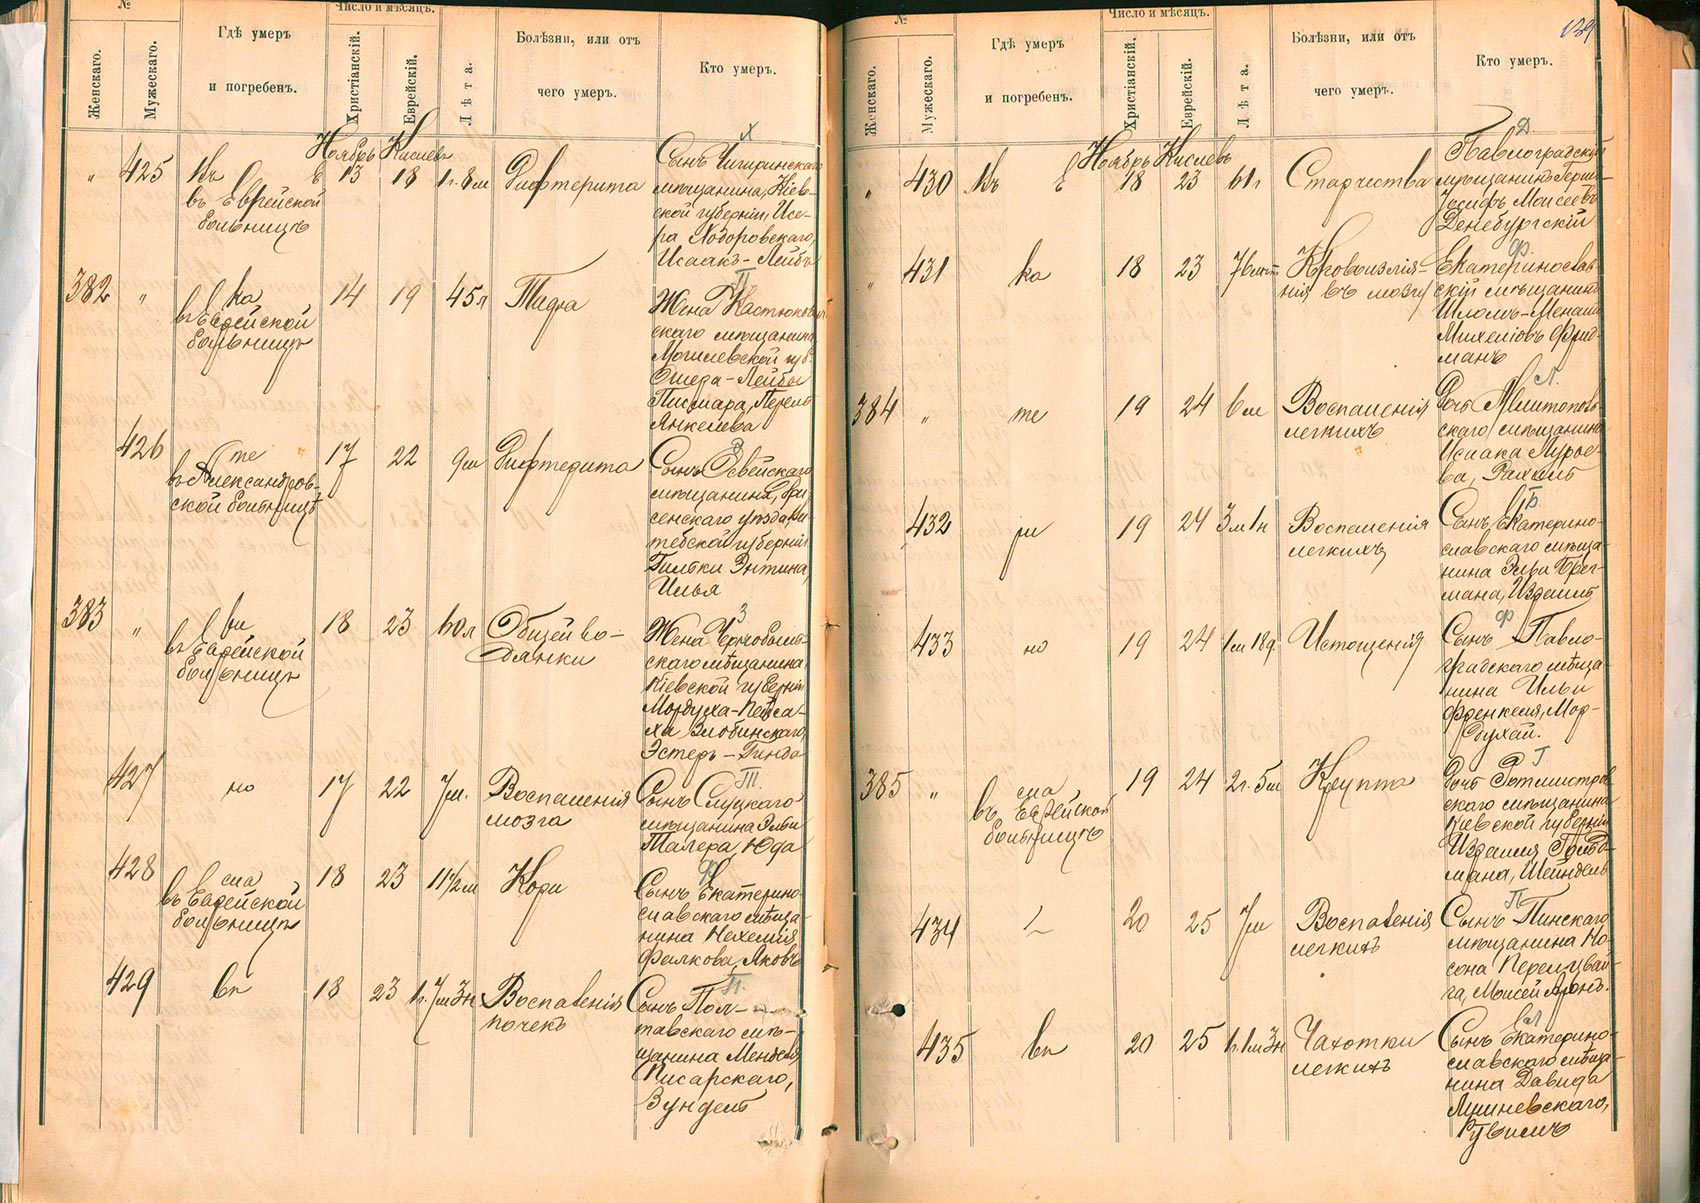 №
Женскаго.
Мужескаго.
Гдѣ умеръ
и погребенъ.
Число и мѣсяцъ.
Христіанскій.
Еврейскій.
Лѣта.
Болѣзни, или отъ
чего умеръ.
Кто умеръ.
Ноябрь Кислевъ
" 425 въ Еврейской
больницѣ
13 18 1г. 8м Дифтерита
Сынъ Чигиринскаго
мѣщанина, Кіев-
ской губерніи, Исе-
ра Ходоровскаго,
Исаакъ-Лейбъ
382 " ка
въ Еврейской
больницѣ
14 19 45л
П
Жена
скаго мѣщанина
Могилевской губ.
Ошера-Лейбы
Писмара, Перелъ
Янкелева
426 те
въ Александров-
ской больницѣ
17 22 9м Дифтерита
Э
Сынъ Освейскаго
мѣщанина, Дри-
сенскаго уѣзда, Ви-
тебской губерніи
Гилки Энтина,
Илья
383 " ви
въ Еврейской
больницѣ
18 23 60л Общей во-
дянки
З
Жена Чернобыль-
скаго мѣщанина
Кіевской губерніи
Мордуха-Пейса-
ха Злобинскаго,
Эстеръ-Гинда
427 но 17 22 7м. Воспаленія
мозга
Т.
Сынъ Слуцкаго
мѣщанина Эльи
Талера, Юда
428 сла
въ Еврейской
больницѣ
18 23 11½м Кори
Ф
Сынъ Екатерино-
славскаго мѣща-
нина Нехемія
Фалкова, Яковъ
429 вп 18 23 1г. 7м 3н Воспаленія
почекъ
П.
Сынъ Пол-
тавскаго мѣ-
щанина Менделя
Писарскаго,
Зунделъ
№
Женскаго.
Мужескаго.
Гдѣ умеръ
и погребенъ.
Число и мѣсяцъ.
Христіанскій.
Еврейскій.
Лѣта.
Болѣзни, или отъ
чего умеръ.
Кто умеръ.
139
Ноябрь Кислевъ
" 430 Въ Е 18 23 61г Старчества
Д
Павлоградскій
мѣщанинъ Герш-
Іосифъ Моисеевъ
Денебургскій
" 431 ка 18 23 76лѣт Кровоизлія-
нія въ мозгу
Ф
Екатеринослав-
скій мѣщанинъ
Шлома-Менаше
Михелівъ Фрид-
манъ
384 " те 19 24 6м Воспаленія
легкихъ
Л.
Дочь Мелитополь-
скаго мѣщанина
Исаака Лурье-
ва, Рахиль
432 ри 19 24 3м 1н Воспаленія
легкихъ
Б
Сынъ Екатерино-
славскаго мѣща-
нина Эльи Брег-
мана, Израиль
433 но 19 24 1м 18д Истощенія
Ф
Сынъ Павло-
градскаго мѣща-
нина Ильи
Френкеля, Мор-
духай.
385 " сла
въ Еврейской
больницѣ
19 24 2г. 5м Круппа
Г
Дочь Ротмистров-
скаго мѣщанина
Кіевской губерніи
Израиля Гольд-
мана, Шейндель
434 20 25 7м Воспаленія
легкихъ
П
Сынъ Пинскаго
мѣщанина Но-
сона Перелцвай-
га, Моисей Аронъ.
435 вп 20 25 1г. 1м 3н Чахотки
легкихъ
Л
Сынъ Екатерино-
славскаго мѣща-
нина Давида
Лушневскаго,
Рувимъ